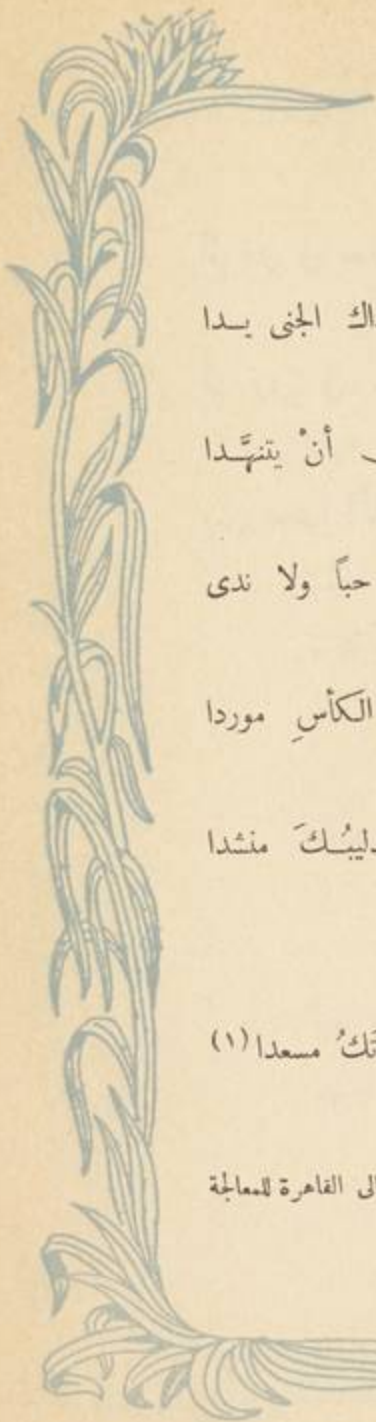 الجنى يدا
أنْ يتنهَّدا
حباً ولا ندى
الكأسِ موردا
منشدا
مسعدا (١)
القاهرة للمعالجة